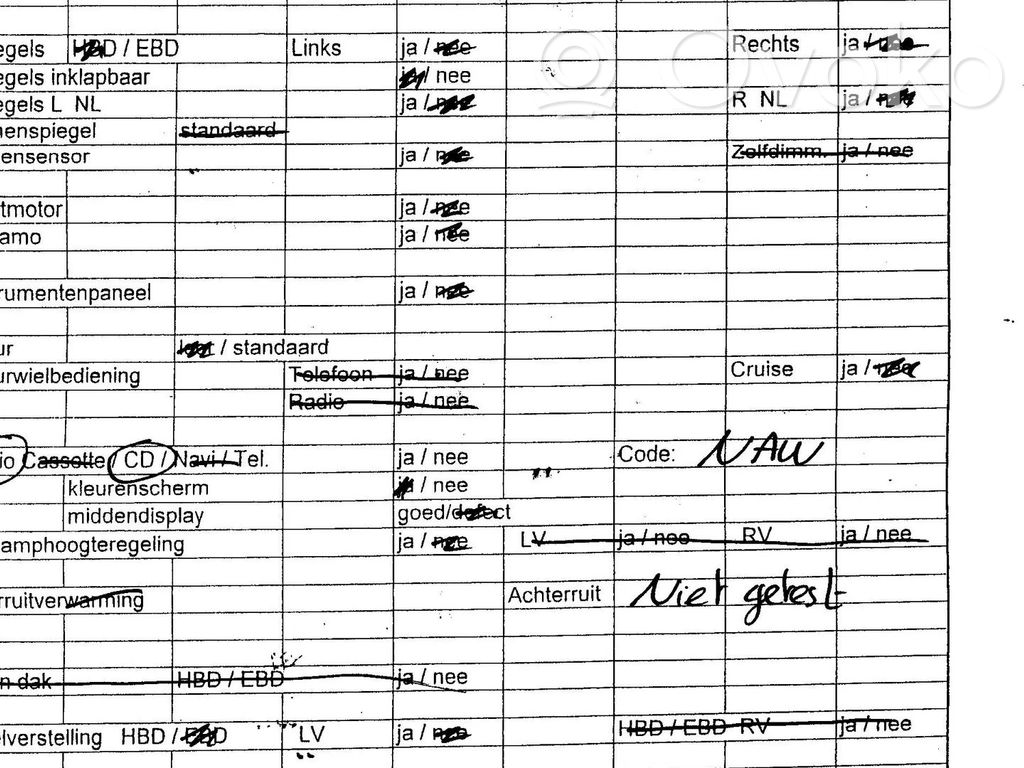 egels HBD / EBD Links ja / nee Rechts ja / nee
egels inklapbaar ja / nee
egels L NL ja / nee R NL ja / nee
nenspiegel standaard
ensensor ja / nee Zelfdimm. ja / nee
tmotor ja / nee
amo ja / nee
rumentenpaneel ja / nee
ur / standaard
urwielbediening Telefoon ja / nee Cruise ja / nee
Radio ja / nee
io Cassette / CD / Navi / Tel. ja / nee Code: NAW
kleurenscherm ja / nee
middendisplay goed/defect
amphoogteregeling ja / nee LV ja / nee RV ja / nee
rruitverwarming Achterruit Niet getest
n dak HBD / EBD ja / nee
elverstelling HBD / EBD LV ja / nee HBD / EBD RV ja / nee
Ovoko